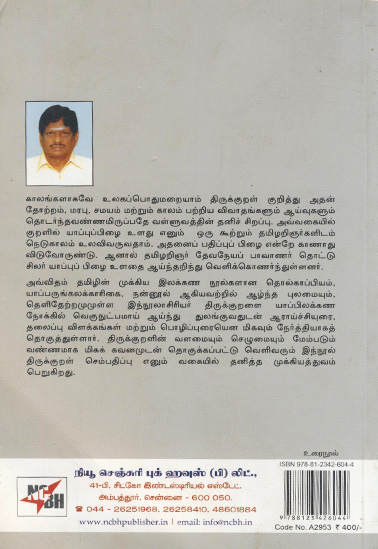 காலங்காலமாகவே உலகப்பொதுமறையாம் திருக்குறள் குறித்து அதன்
தோற்றம், மரபு, சமயம் மற்றும் காலம் பற்றிய விவாதங்களும் ஆய்வுகளும்
தொடர்ந்தவண்ணமிருப்பதே வள்ளுவத்தின் தனிச் சிறப்பு. அவ்வகையில்
குறளில் யாப்புப்பிழை உளது எனும் ஒரு கூற்றும் தமிழறிஞர்களிடம்
நெடுகாலம் உலவிவருவதாம். அதனைப் பதிப்புப் பிழை என்றே காணாது
விடுவோருண்டு. ஆனால் தமிழறிஞர் தேவநேயப் பாவாணர் தொட்டு
சிலர் யாப்புப் பிழை உளதை ஆய்ந்தறிந்து வெளிக்கொணர்ந்துள்ளனர்.
அவ்விதம் தமிழின் முக்கிய இலக்கண நூல்களான தொல்காப்பியம்,
யாப்பருங்கலக்காரிகை, நன்னூல் ஆகியவற்றில் ஆழ்ந்த புலமையும்,
தெளிதேற்றமுமுள்ள இந்நூலாசிரியர் திருக்குறளை யாப்பிலக்கண
நோக்கில் வெகுநுட்பமாய் ஆய்ந்து துலங்குவதுடன் ஆராய்ச்சியுரை,
தலைப்பு விளக்கங்கள் மற்றும் பொழிப்புரையென மிகவும் நேர்த்தியாகத்
தொகுத்துள்ளார். திருக்குறளின் வளமையும் செழுமையும் மேம்படும்
வண்ணமாக மிகக் கவனமுடன் தொகுக்கப்பட்டு வெளிவரும் இந்நூல்
திருக்குறள் செம்பதிப்பு எனும் வகையில் தனித்த முக்கியத்துவம்
பெறுகிறது.
உரைநூல்
ISBN 978-81-2342-604-4
NCBH
நியூ செஞ்சுரி புக் ஹவுஸ் (பி) லிட்.,
41-பி, சிட்கோ இண்டஸ்டிரியல் எஸ்டேட்,
அம்பத்தூர், சென்னை - 600 050.
☎ 044 - 26251968, 26258410, 48601884
www.ncbhpublisher.in | email: info@ncbh.in
9 788123 426044
Code No. A2953 ₹ 400/-